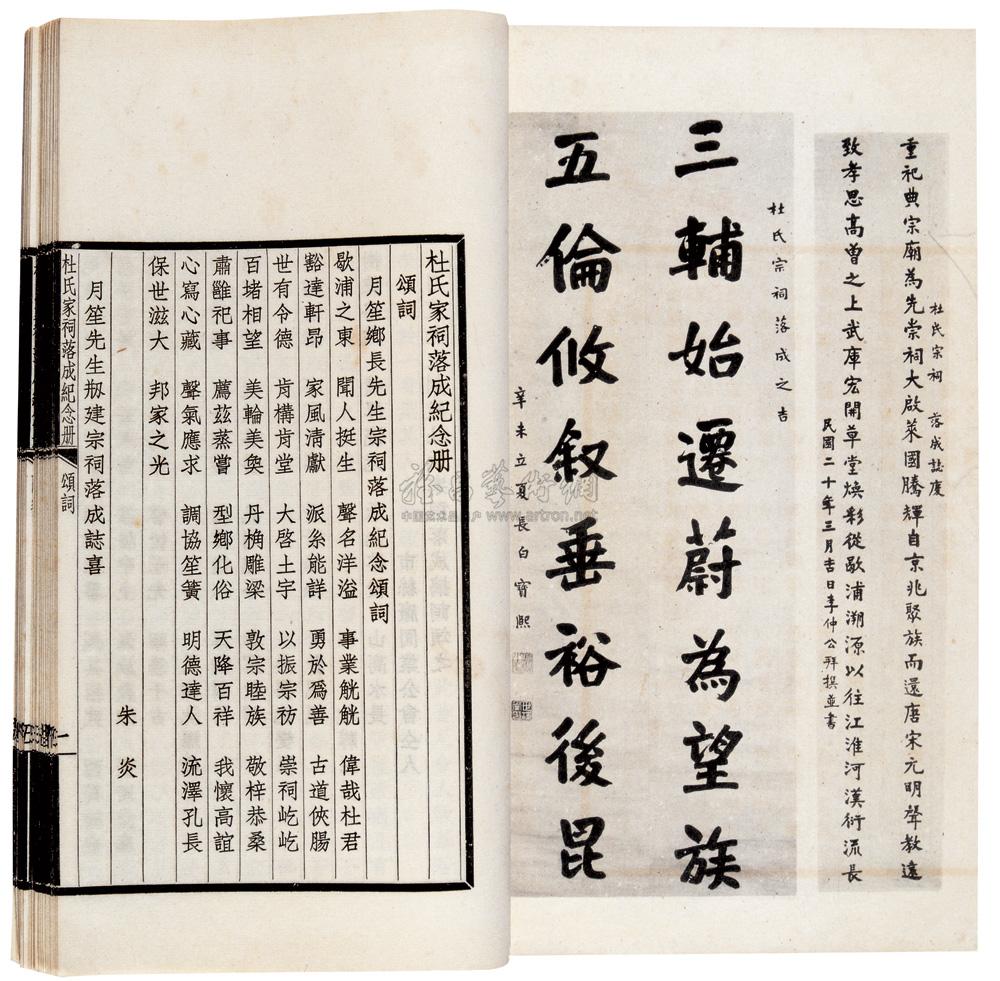 杜氏宗祠 落成誌慶
重祀典宗廟為先崇祠大啟萊國騰輝自京兆聚族而還唐宋元明聲教遠
致孝思高曾之上武庫宏開草堂煥彩從歇浦溯源以往江淮河漢衍流長
民國二十年三月吉日李仲公拜撰並書
杜氏宗祠落成之吉
三輔始遷蔚為望族
五倫攸叙垂裕後昆
辛未立夏長白寶熙
杜氏家祠落成紀念册
頌詞
月笙鄉長先生宗祠落成紀念頌詞
歇浦之東 聞人挺生 聲名洋溢 事業觥觥 偉哉杜君
豁達軒昂 家風清獻 派系能詳 勇於爲善 古道俠腸
世有令德 肯構肯堂 大啓土宇 以振宗祊 崇祠屹屹
百堵相望 美輪美奐 丹桷雕梁 敦宗睦族 敬梓恭桑
肅雝祀事 薦茲蒸嘗 型鄉化俗 天降百祥 我懷高誼
心寫心藏 聲氣應求 調協笙簧 明德達人 流澤孔長
保世滋大 邦家之光
朱炎
月笙先生刱建宗祠落成誌喜
杜氏家祠落成紀念册 頌詞 一
雅昌藝術網
www.artron.net